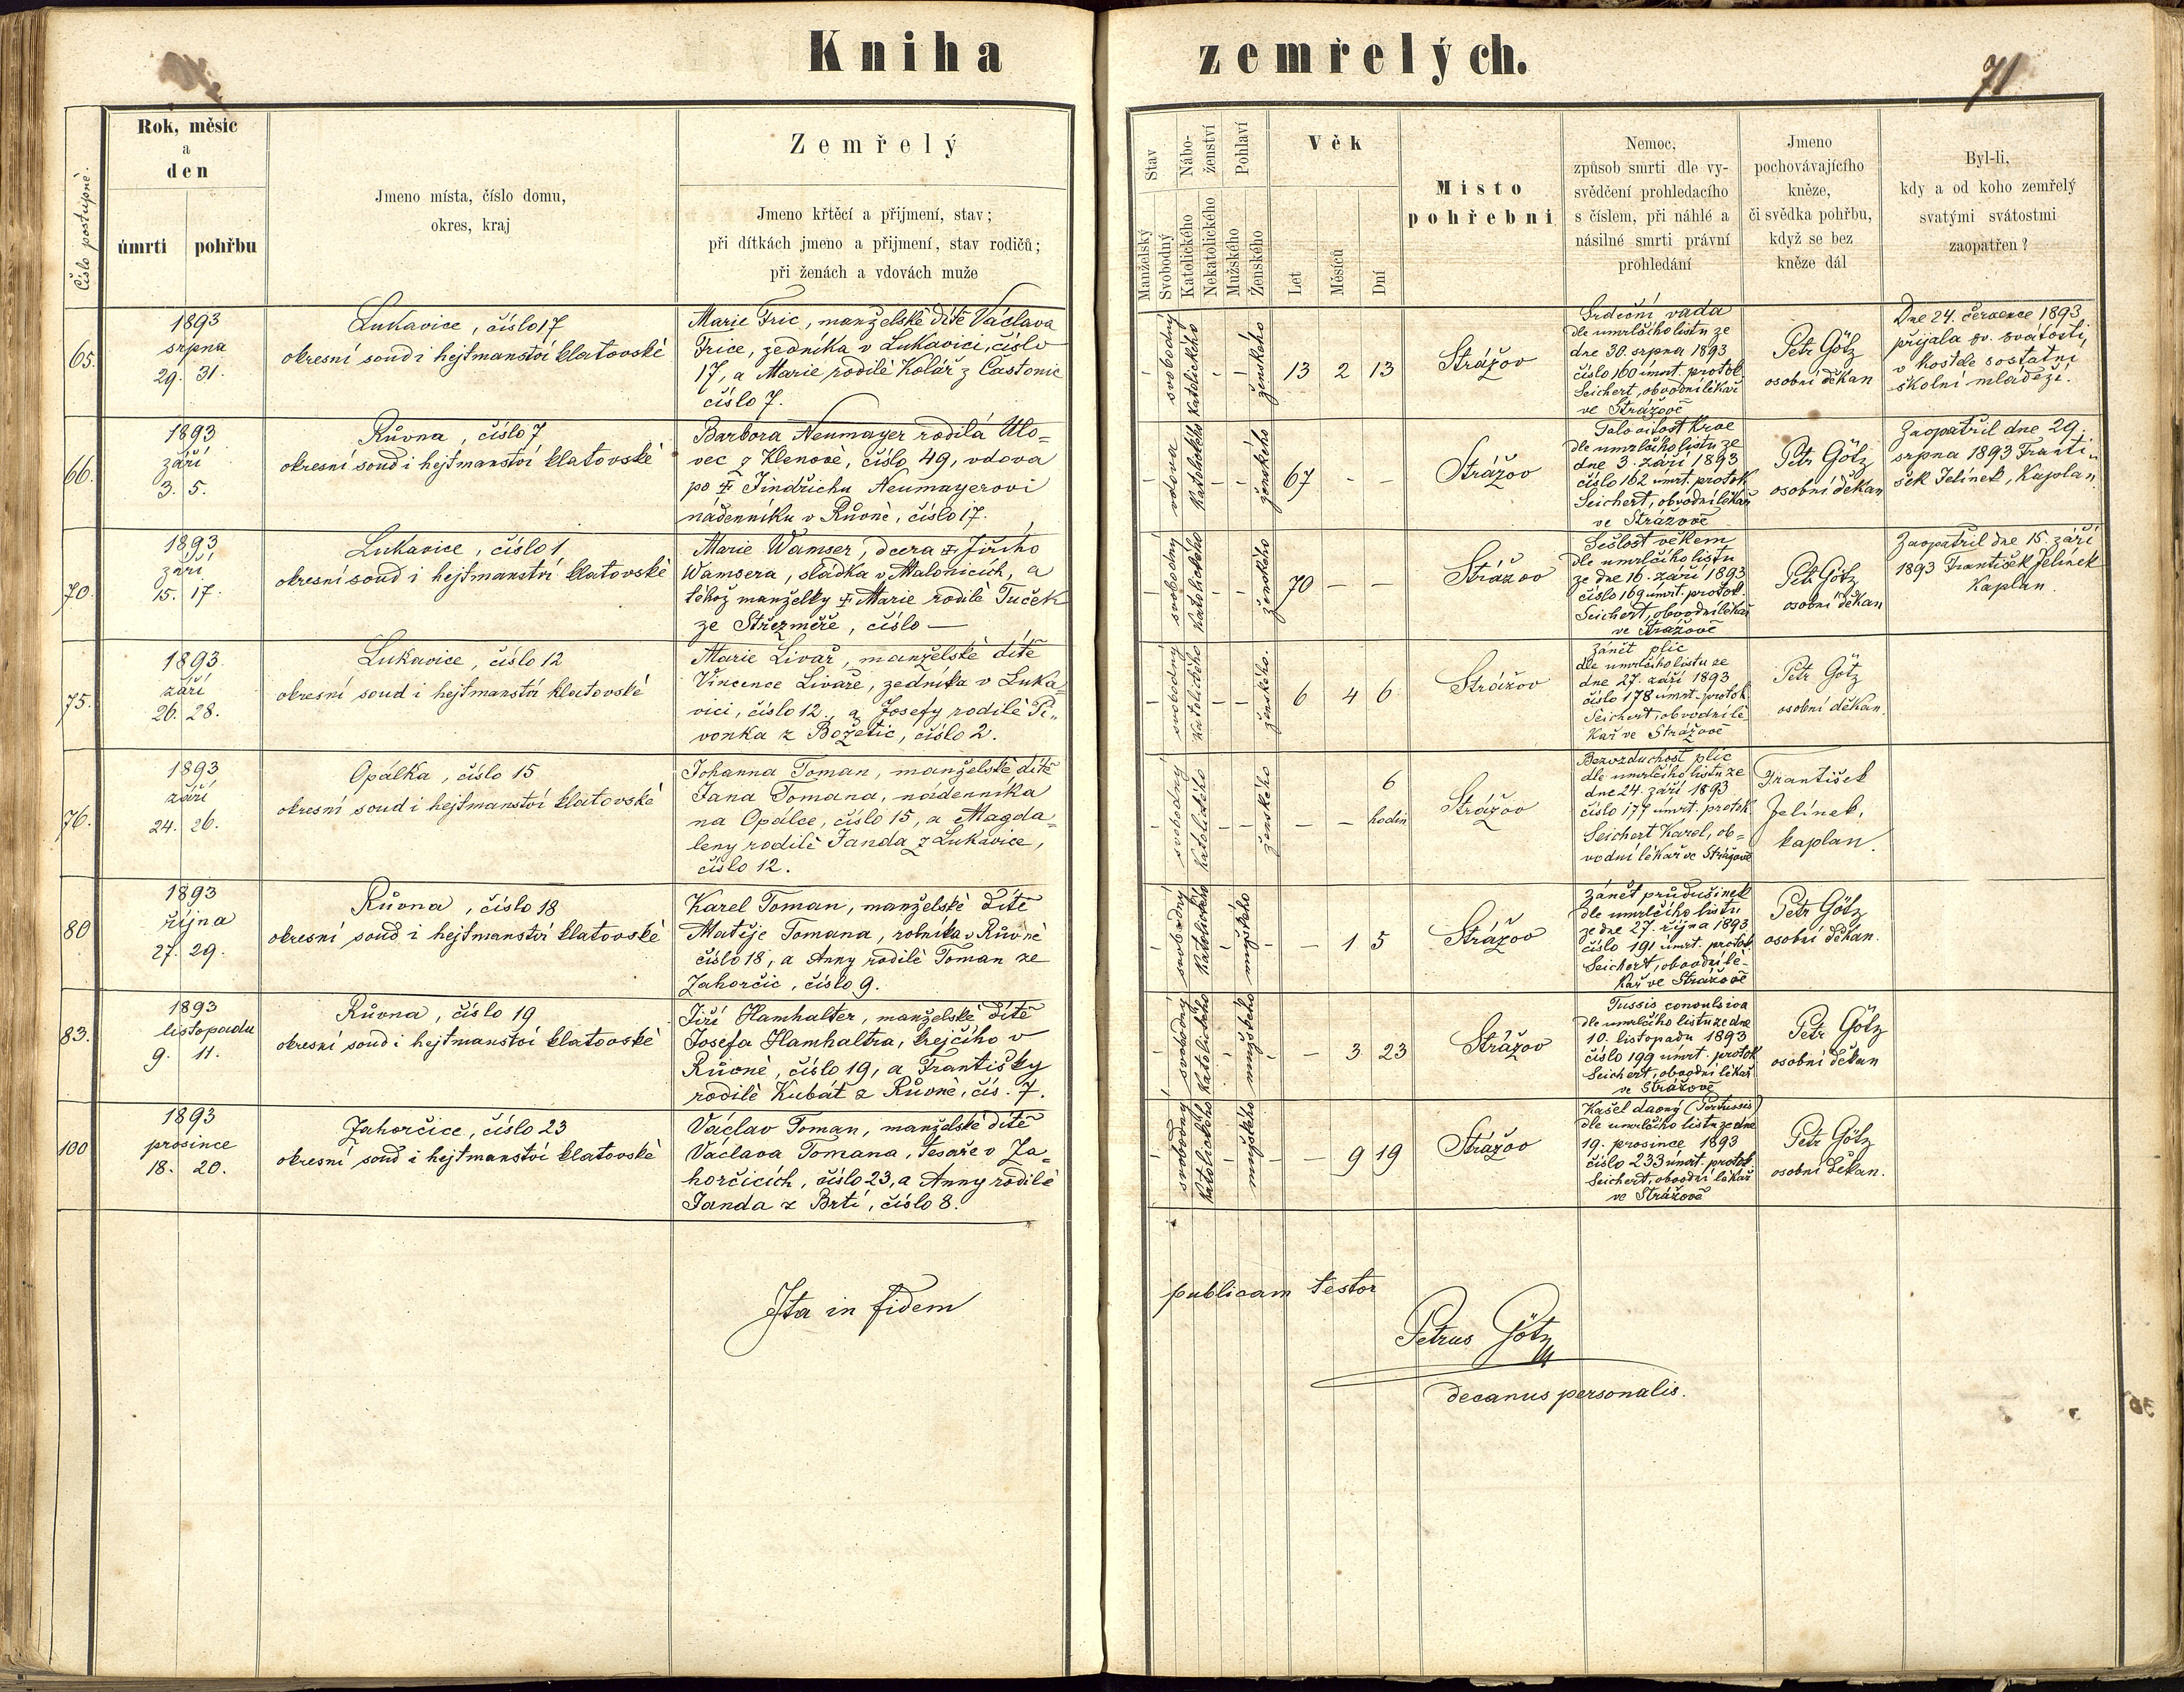 Kniha zemřelých.
71
Číslo postupné.
Rok, měsíc
a
den
úmrtí
pohřbu
Jmeno místa, číslo domu,
okres, kraj
Zemřelý
Jmeno křtěcí a přijmení, stav;
při dítkách jmeno a přijmení, stav rodičů;
při ženách a vdovách muže
Stav
Manželský
Svobodný
Nábo-
ženství
Katolického
Nekatolického
Pohlaví
Mužského
Ženského
Věk
Let
Měsíců
Dní
Místo
pohřební
Nemoc,
způsob smrti dle vy-
svědčení prohledacího
s číslem, při náhlé a
násilné smrti právní
prohledání
Jmeno
pochovávajícího
kněze,
či svědka pohřbu,
když se bez
kněze dál
Byl-li,
kdy a od koho zemřelý
svatými svátostmi
zaopatřen?
65.
1893
srpna
29. 31.
Lukavice, číslo 17
okresní soud i hejtmanství klatovské
Marie Fric, manželské dítě Václava
Frice, zedníka v Lukavici, číslo
17, a Marie rodilé Kolář z Častonic
číslo 7.
svobodný
katolického
ženského
13 2 13
Strážov
Srdeční vada
dle umrlčího listu ze
dne 30. srpna 1893
číslo 160 úmrt. protok.
Seichert, obvodní lékař
ve Strážově
Petr Götz
osobní děkan
Dne 24. července 1893
přijala sv. svátosti,
v kostele s ostatní
školní mládeží.
66.
1893
září
3. 5.
Růvna, číslo 7
okresní soud i hejtmanství klatovské
Barbora Neumayer rodilá Ulo=
vec z Klenové, číslo 49, vdova
po ✝ Jindřichu Neumayerovi
nádenníku v Růvně, číslo 17.
vdova
katolického
ženského
67 - -
Strážov
Jalovitost krve
dle umrlčího listu ze
dne 3. září 1893
číslo 162 úmrt. protok
Seichert, obvodní lékař
ve Strážově
Petr Götz
osobní děkan
Zaopatřil dne 29.
srpna 1893 Franti„
šek Jelínek, kaplan
70.
1893
září
15. 17.
Lukavice, číslo 1
okresní soud i hejtmanství klatovské
Marie Wamser, dcera ✝ Jiřího
Wamsera, sládka v Malonicích, a
téhož manželky ✝ Marie rodilé Tuček
ze Střezměře, číslo —
svobodný
katolického
ženského
70 — —
Strážov
Sešlost věkem
dle umrlčího listu
ze dne 16. září 1893
číslo 169 úmrt. protok.
Seichert, obvodní lékař
ve Strážově
Petr Götz
osobní děkan
Zaopatřil dne 15. září
1893 František Jelínek
kaplan.
75.
1893
září
26. 28.
Lukavice, číslo 12
okresní soud i hejtmanství klatovské
Marie Livař, manželské dítě
Vincence Livaře, zedníka v Luka=
vici, číslo 12., a Josefy rodilé Pi„
vonka z Božetic, číslo 2.
svobodný
katolického
ženského.
6 4 6
Strážov
Zánět plic
dle umrlčího listu ze
dne 27. září 1893
číslo 178 úmrt. protok.
Seichert, obvodní lé
kař ve Strážově
Petr Götz
osobní děkan.
76.
1893
září
24. 26.
Opálka, číslo 15
okresní soud i hejtmanství klatovské
Johanna Toman, manželské dítě
Jana Tomana, nádenníka
na Opálce, číslo 15, a Magda=
leny rodilé Janda z Lukavice,
číslo 12.
svobodný
katolického
ženského
— — 6
hodin
Strážov
Bezvzduchost plic
dle umrlčího listu ze
dne 24. září 1893
číslo 177 úmrt. protok.
Seichert Karel, ob=
vodní lékař ve Strážově
František
Jelínek,
kaplan.
80
1893
října
27. 29.
Růvna, číslo 18
okresní soud i hejtmanství klatovské
Karel Toman, manželské dítě
Matěje Tomana, rolníka v Růvně
číslo 18, a Anny rodilé Toman ze
Jahorčic, číslo 9.
svobodný
katolického
mužského
— 1 5
Strážov
Zánět průdušinek
dle umrlčího listu
ze dne 27. října 1893
číslo 191 úmrt. protok
Seichert, obvodní lé-
kař ve Strážově
Petr Götz
osobní děkan.
83.
1893
listopadu
9. 11.
Růvna, číslo 19
okresní soud i hejtmanství klatovské
Jiří Hamhalter, manželské dítě
Josefa Hamhaltra, krejčího v
Růvně, číslo 19, a Františky
rodilé Kubát z Růvně, čís. 7.
svobodný
katolického
mužského
— 3 23
Strážov
Tussis convulsiva
dle umrlčího listu ze dne
10. listopadu 1893
číslo 199 úmrt. protok
Seichert, obvodní lékař
ve Strážově
Petr Götz
osobní děkan
100
1893
prosince
18. 20.
Jahorčice, číslo 23
okresní soud i hejtmanství klatovské
Václav Toman, manželské dítě
Václava Tomana, tesaře v Ja=
horčicích, číslo 23, a Anny rodilé
Janda z Brtí, číslo 8.
svobodný
katolického
mužského
— 9 19
Strážov
Kašel davný (Pertussis)
dle umrlčího listu ze dne
19. prosince 1893
číslo 233 úmrt. protok
Seichert, obvodní lékař
ve Strážově
Petr Götz
osobní děkan.
Ita in fidem publicam testor
Petrus Götz
decanus personalis.